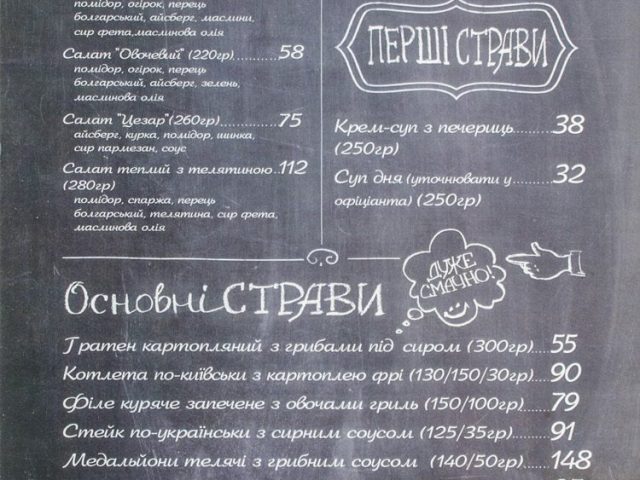 помідор, огірок, перець
болгарський, айсберг, маслини,
сир фета,маслинова олія
Салат "Овочевий" (220гр)......58
помідор, огірок, перець
болгарський, айсберг, зелень,
маслинова олія
Салат "Цезар"(260гр)..........75
айсберг, курка, помідор, шинка,
сир пармезан, соус
Салат теплий з телятиною..112
(280гр)
помідор, спаржа, перець
болгарський, телятина, сир фета,
маслинова олія
ПЕРШІ СТРАВИ
Крем-суп з печериць..........38
(250гр)
Суп дня (уточнювати у........32
офіціанта) (250гр)
ДУЖЕ
СМАЧНО!
Основні СТРАВИ
Гратен картопляний з грибами під сиром (300гр)....55
Котлета по-київськи з картоплею фрі (130/150/30гр)...90
Філе куряче запечене з овочами гриль (150/100гр).....79
Стейк по-українськи з сирним соусом (125/35гр)........91
Медальйони телячі з грибним соусом (140/50гр)......148